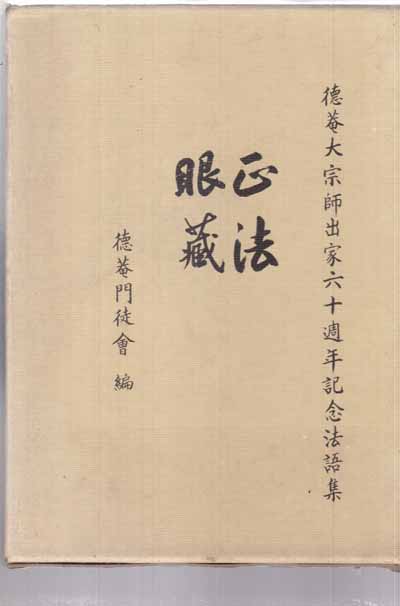 德菴大宗師出家六十週年記念法語集
正法
眼藏
德菴門徒會 編